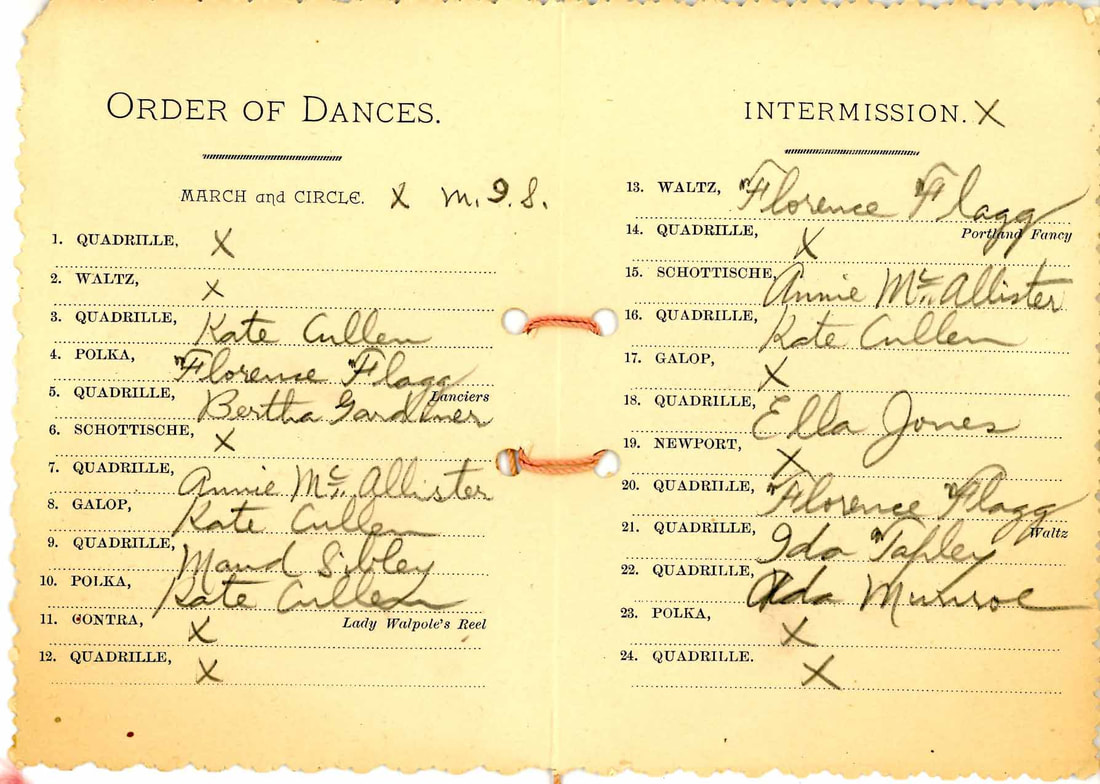 ORDER OF DANCES.
MARCH and CIRCLE. X M. I. S.
1. QUADRILLE, X
2. WALTZ, X
3. QUADRILLE, Kate Cullen
4. POLKA, Florence Flagg
5. QUADRILLE, Bertha Gardiner Lanciers
6. SCHOTTISCHE, X
7. QUADRILLE, Annie Mc. Allister
8. GALOP, Kate Cullen
9. QUADRILLE, Maud Sibley
10. POLKA, Kate Cullen
11. CONTRA, X Lady Walpole's Reel
12. QUADRILLE, X
INTERMISSION. X
13. WALTZ, Florence Flagg
14. QUADRILLE, X Portland Fancy
15. SCHOTTISCHE, Annie Mc. Allister
16. QUADRILLE, Kate Cullen
17. GALOP, X
18. QUADRILLE, Ella Jones
19. NEWPORT, X
20. QUADRILLE, Florence Flagg
21. QUADRILLE, Ida Tapley Waltz
22. QUADRILLE, Ada Munroe
23. POLKA, X
24. QUADRILLE. X